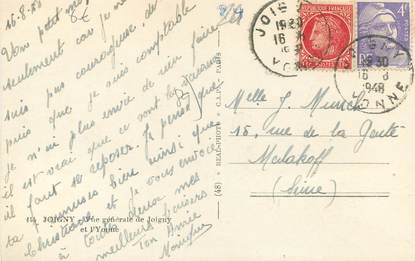 16-8-48
Un petit mot
seulement car je ne suis
pas courageuse, de
puis que je suis
je n'ai plus envie de rien faire
il est vrai que ce sont les vacances
faut se reposer. Je pense que
tu t'amuses bien ainsi que
Christiane et je vous envoie
à toutes deux mes
meilleurs baisers
Ton Amie
Monique
8€
JOIGNY
16 8
1948
YONNE
4F
RÉPUBLIQUE FRANÇAISE
Melle G.
15, rue de la Gaîté
Malakoff
(Seine)
(48) REAL-PHOTO C.A.P. PARIS
JOIGNY - Vue générale de Joigny
et l'Yonne